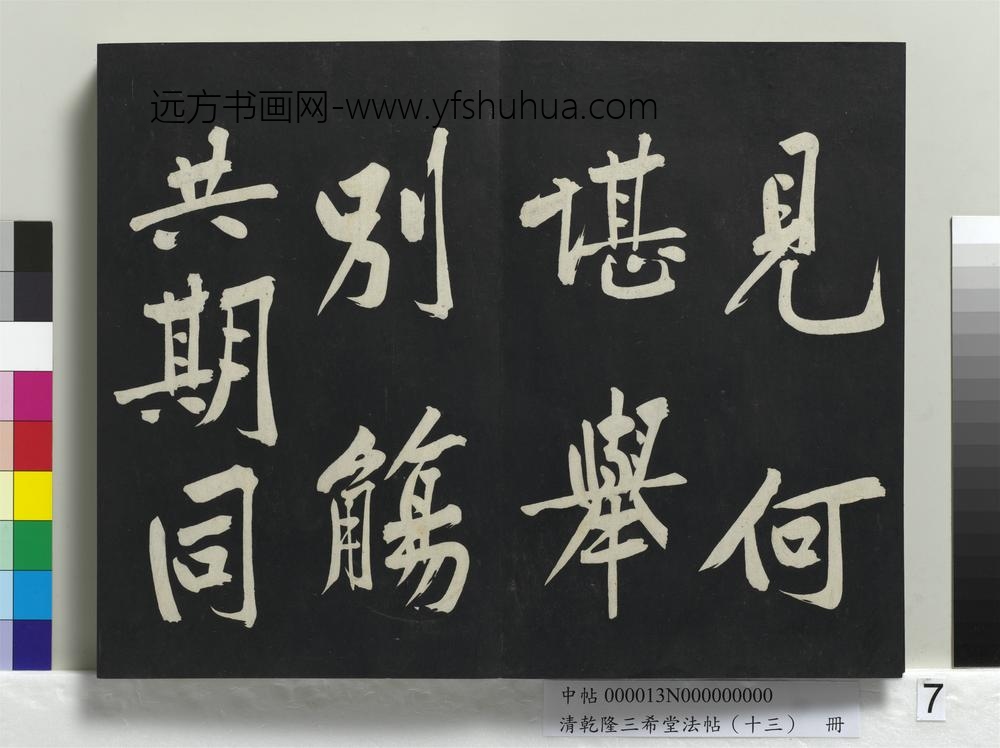 远方书画网-www.yfshuhua.com
見何
堪舉
別觴
共期同
中帖 000013N000000000
清乾隆三希堂法帖（十三） 冊
7